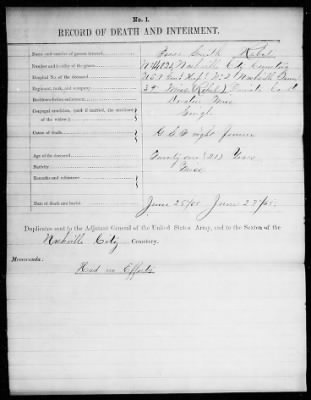 No. 1.
RECORD OF DEATH AND INTERMENT.
Name and number of person interred, Smith Rebel
Number and locality of the grave, Nashville City Cemetery
Hospital No. of the deceased, U.S.A. Genl Hospl No. 2 Nashville Tenn
Regiment, rank, and company, Miss (Rebel) Private Co.
Residence before enlistment, Miss
Conjugal condition, (and if married, the residence of the widow,) Single
Cause of death, G S W right
Age of the deceased, Twenty one (21) Years
Nativity, Miss
Remarks and references,
Date of death and burial, June 25/65 June 27/65
Duplicates sent to the Adjutant General of the United States Army, and to the Sexton of the
Nashville City Cemetery.
Memoranda:
Had no Effects